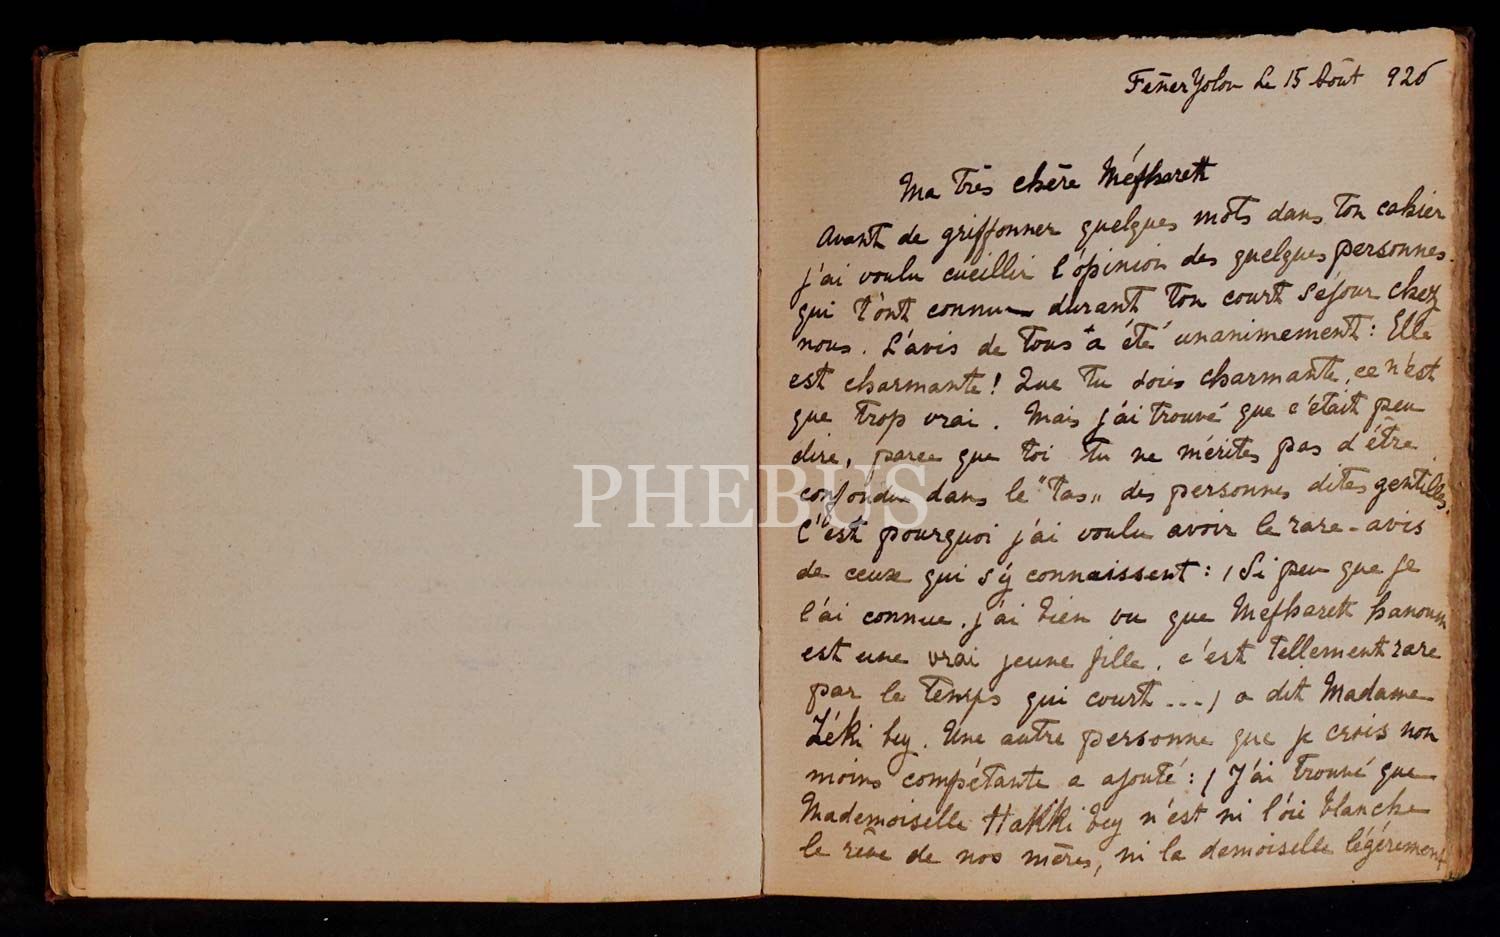 FénerYolou le 15 Août 926
Ma Très chère Méfharett
Avant de griffonner quelques mots dans ton cahier
j'ai voulu cueillir l'opinion des quelques personnes
qui t'ont connue durant ton court séjour chez
nous. L'avis de tous a été unanimement : Elle
est charmante ! Que tu sois charmante, ce n'est
que trop vrai. Mais j'ai trouvé que c'était peu
dire, parce que toi tu ne mérites pas d'être
confondue dans le "tas" des personnes dites gentilles.
C'est pourquoi j'ai voulu avoir le rare-avis
de ceux qui s'y connaissent : (Si peu que je
l'ai connue, j'ai bien vu que Mefharett hanoum
est une vrai jeune fille, c'est tellement rare
par le temps qui court ...) a dit Madame
Zéki bey. Une autre personne que je crois non
moins compétante a ajouté : (J'ai trouvé que
Mademoiselle Hakki bey n'est ni l'oie blanche
le rêve de nos mères, ni la demoiselle légèrement
PHEBUS